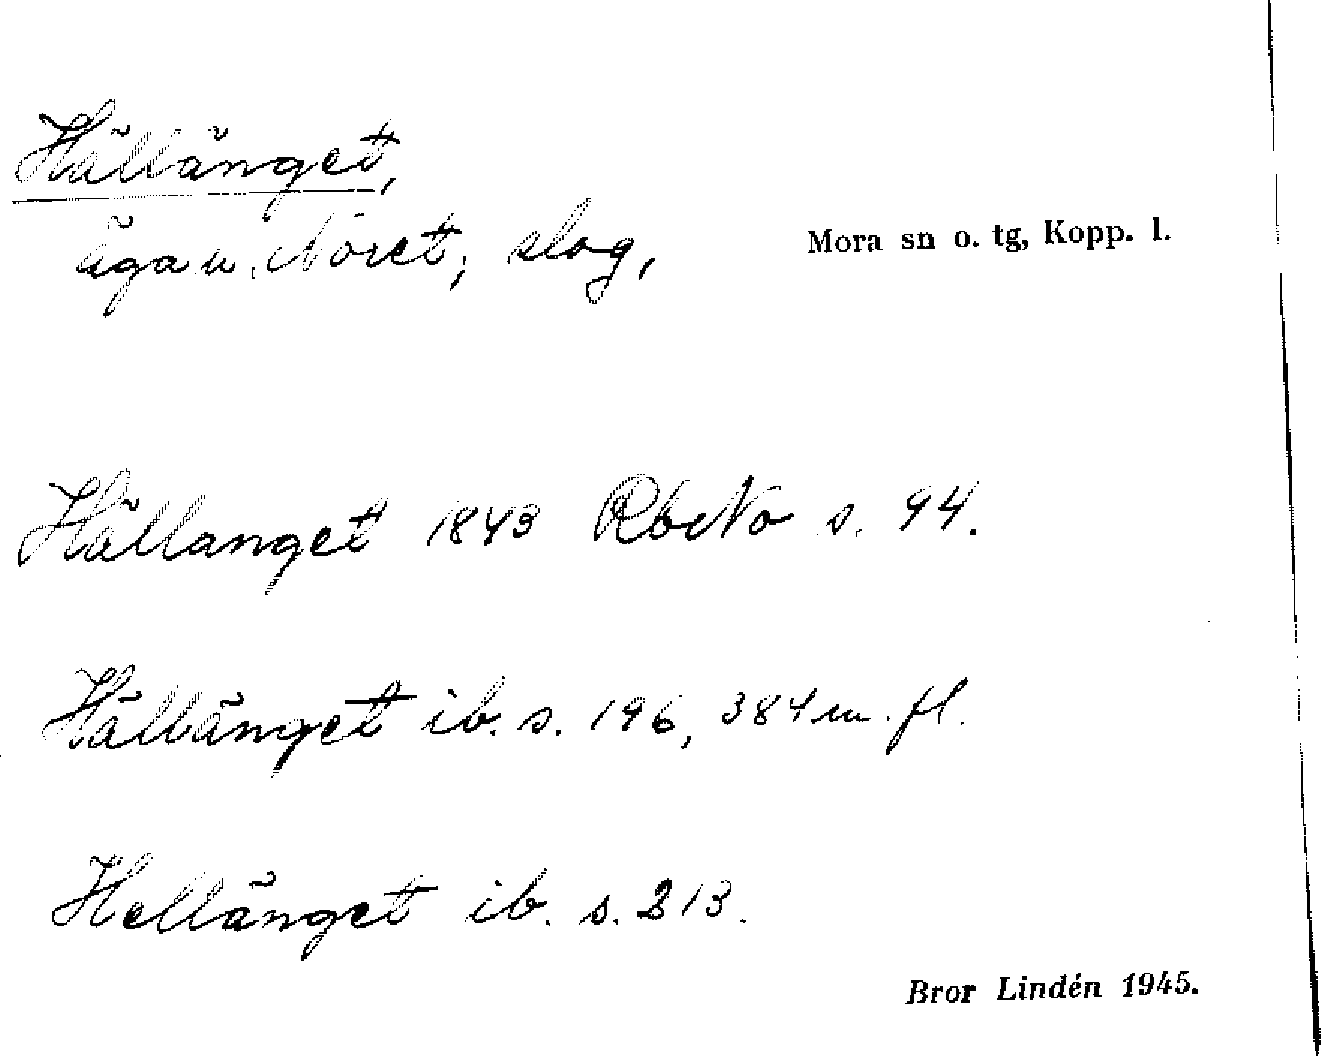 Hällänget,
äga u. Noret, slog,
Mora sn o. tg, Kopp. l.
Hällanget 1843 RbNo s. 94.
Hällänget ib. s. 196, 384 m. fl.
Hellänget ib. s. 213.
Bror Lindén 1945.